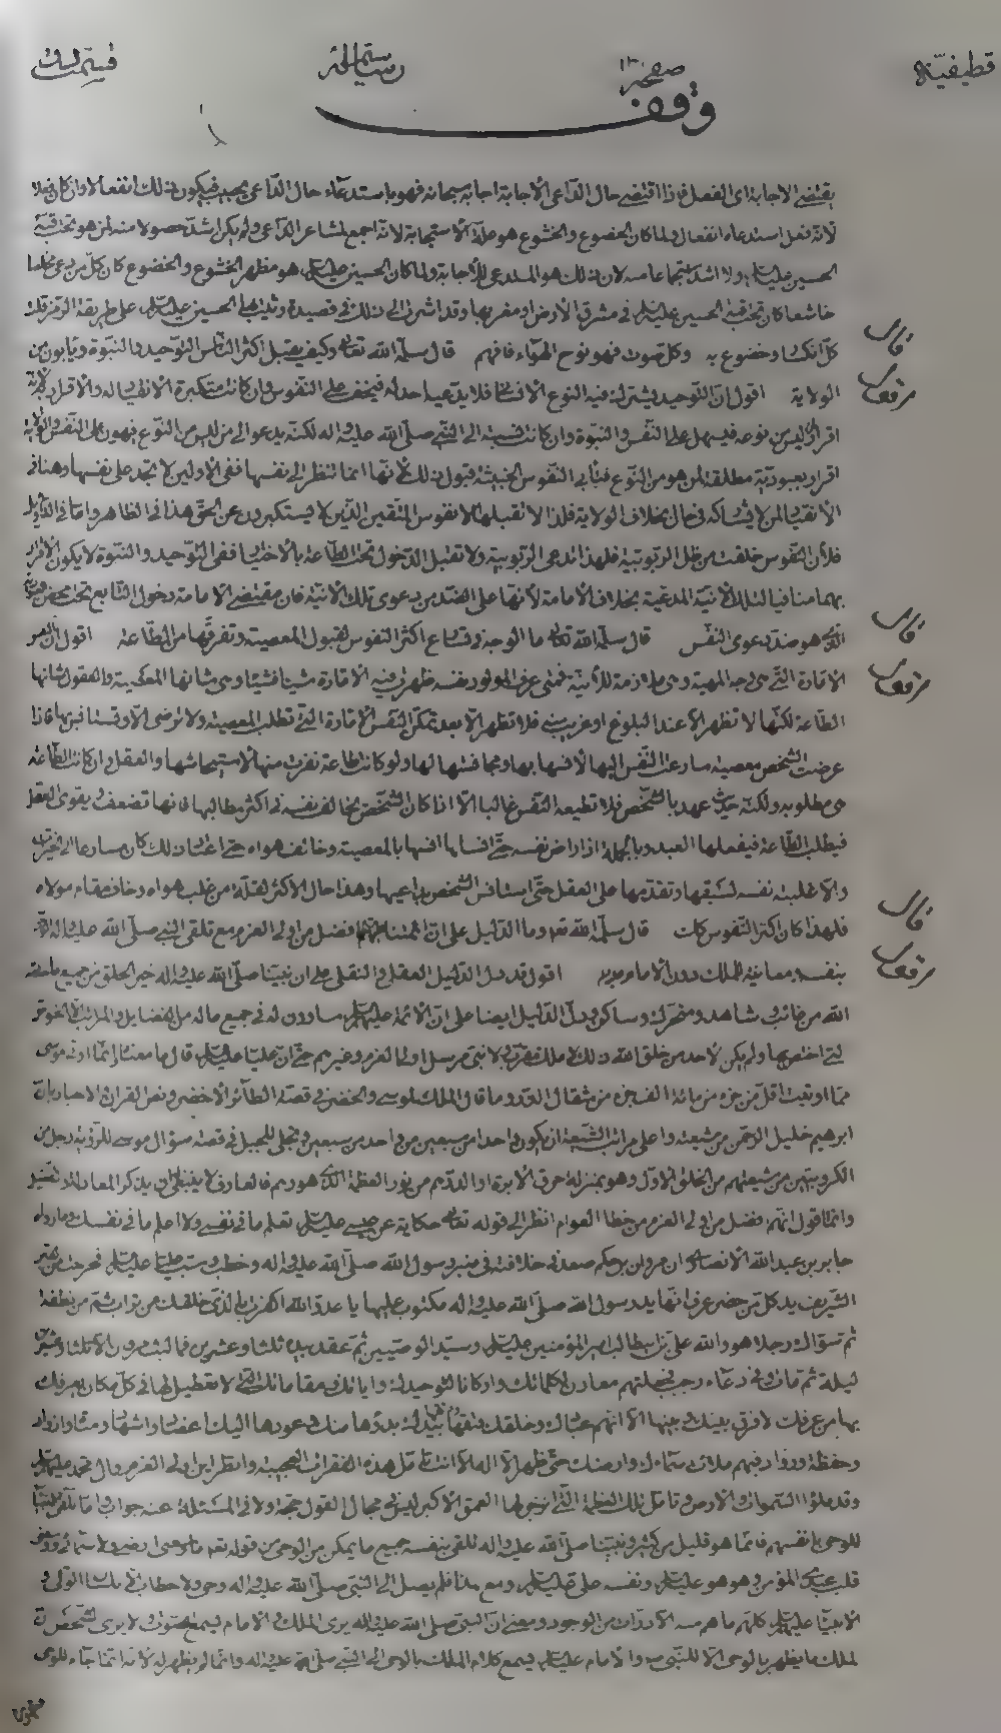 قطيفيّة صفحه ١٣٠ رسالة
وقف
يقتضى الاجابة اى الفصل فاذا اقتضى حال الدّاعى الاجابة اجابه سبحانه فهو باستدعاء حال الدّاعى يجيب فيكون ذلك انفعالا وان كان فعلا
لانّه فعل استدعاء انفعال ولما كان الخضوع والخشوع هو علّة الاستجابة لانّه اجمع لمشاعر الدّاعى ولم يكن اشدّ حصولا منه لمن هو تحت قبّة
الحسين عليه السلم ولا اشدّ لان ذلك هو المستدعى للاجابة ولما كان الحسين عليه السلم هو مظهر الخشوع والخضوع كان كلّ من دعى
خاشعا كان تحت قبّة الحسين عليه السلم فى مشرق الارض او مغربها وقد اشرت الى ذلك فى قصيدة رثيت بها الحسين عليه السلم على طريقة الرّمز قلت
كلّ انكسار وخضوع به وكل صوت فهو نوح الهواء فافهم قال سلّمه اللّه تعالى وكيف يقبل اكثر النّاس التّوحيد والنّبوّة ويأبون من
قال
الولاية اقول انّ التّوحيد يشترك فيه النوع الانسانى فلا يدّعيه احد له فيخفّ على النّفوس وان كانت متكبّرة الانقياد له والاقرار به لانّه
مرفوع
اقرار لمن ليس من نوعه فيسهل على النّفس والنبوّة وان كانت نسبة الى النّبى صلّى اللّه عليه واله لكنّه يدعو الى من ليس من النّوع فيهون على النّفس والولاية
اقرار بعبوديّة مطلقة لمن هو من النّوع فتأبى النّفوس الخبيثة قبول ذلك لانّها انما تنظر الى نفسها ففى الاولين لا تجد على نفسها وهنا فى
الانقياد لمن لا يشاكه فى حال بخلاف الولاية فلذا لا تقبلها الا نفوس المتّقين الّذين لا يستكبرون عن الحق هذا فى الظاهر وامّا فى التّأويل
فلأن النّفوس خلقت من ظل الرّبوبيّة فلهذا تدعى الرّبوبية ولا تقبل الدّخول تحت الطّاعة بالاختيار ففى التّوحيد والنّبوّة لا يكون الاقرار
بهما منافيا لتلك الانية المدعية بخلاف الامامة لأنها على الضدّ من دعوى تلك الأنيّة فان مقتضى الامامة دخول التابع تحت محض
الّذى هو ضدّ دعوى النّفس قال سلّمه اللّه تعالى ما الوجه فى تسارع اكثر النّفوس لقبول المعصية وتفرّقها من الطّاعة اقول
قال
الامّارة التّى هى وجه المهية وهى ملازمة للأنيّة فمتى عرف المولود نفسه ظهرت فيه الأمّارة شيئا فشيئا وهى شأنها المعصية والعقول شانها
مرفوع
الطّاعة لكنّها لا تظهر الا عند البلوغ او قريب منه فلا تظهر الا بعد تمكّن النّفس الأمّارة التّى تطلب المعصية ولا ترضى الا وقد استأنس بها فاذا
عرضت للشّخص معصية سارعت النّفس اليها لأنسها بها ومجانستها لها ولو كانت طاعة نفرت منها لاستيحاشها والعقل وان كانت الطّاعة
هى مطلوبه ولكنّه حديث عهد بالشّخص فلا تطيعه النّفس غالبا الا اذا كان الشّخص يخالف نفسه فى اكثر مطالبها فانها تضعف ويقوى العقل
فيطلب الطّاعة فيفعلها العبد وبالجملة اذا راض نفسه حتّى انساها انسها بالمعصية وخالف هواه حتى اعتاد ذلك كان مسارعا الى الخيرات
والّا غلبته نفسه لسبقها وتقدّمها على العقل حتّى استأنس الشّخص بدواعيها وهذا حال الاكثر لقلّة من غلب هواه وخاف مقام مولاه
فلهذا كان اكثر النّفوس كذلك قال سلّمه اللّه تعالى وما الدّليل على انّ ائمّتنا عليهم السلم افضل من اولى العزم مع تلقى النّبى صلّى اللّه عليه واله
قال
بنفسه ومعاينة الملك دون الامام اقول قد دل الدّليل العقلى والنقلى على ان نبيّنا صلّى اللّه عليه واله خير الخلق من جميع ما خلق
مرفوع
اللّه من غائب وشاهد ومتحرك وساكن ودلّ الدّليل ايضا على انّ الأئمّة عليهم السلم مساوون له فى جميع ما له من الفضايل والمراتب الا الخواص
الّتى اختصّ بها ولم يكن لاحد من خلق اللّه ذلك لا ملك مقرّب ولا نبىّ مرسل اولى العزم وغيرهم حتّى انّ عليّا عليه السلم قال ما معناه انّما اوتى موسى
ممّا اوتيت اقلّ من جزء من مائة الف جزء من مثقال الذّر وما قال الملك لموسى والخضر فى قصّة الطّائر الاخضر ونص القران والاخبار بانّ
ابرهيم خليل الرحمن من شيعته واعلى مراتب الشّيعة ان يكون واحدا من سبعين من واحد من سبعين وتجلّى للجبل فى قصّة سؤال موسى للرّؤية رجل من
الكروبيّين من شيعتهم من الخلق الاوّل وهو بمنزلة خرق الابرة او الدّرهم من نور العظمة الّذى هو ربّهم فالعارف لا ينبغى له ان يذكر المعادلة
وانّما اقول انّهم افضل من اولى العزم من خطأ العوام انظر الى قوله تعالى حكاية عن عيسى عليه السلم تعلم ما فى نفسى ولا اعلم ما فى نفسك وما رواه
جابر بن عبد اللّه الانصارى ان مروان بن حكم صعد فى خلافته فى منبر رسول اللّه صلّى اللّه عليه واله وخطب وسبّ عليا عليه السلم فخرجت من القبر
الشّريف يد كلّ من حضر عرف انّها يد رسول اللّه صلّى اللّه عليه واله مكتوب عليها يا عدوّ اللّه اكفرت بالّذى خلقك من تراب ثمّ من نطفة
ثم سوّاك رجلا هو واللّه على بن ابيطالب امير المؤمنين عليه السلم وسيّد الوصيّين ثمّ عقد بيده ثلثا وعشرين فما لبث مروان الّا ثلثا وعشرين
ليلة ثم مات وفى دعاء رجب فجعلتهم معادن لكلماتك واركانا لتوحيدك واياتك ومقاماتك الّتى لا تعطيل لها فى كلّ مكان يعرفك
بها من عرفك لا فرق بينك وبينها الا انّهم عبادك وخلقك فتقها ورتقها بيدك بدؤها منك وعودها اليك اعضاد واشهاد ومناة وازواد
وحفظة وروّاد فبهم ملأت سماءك وارضك حتّى ظهر ان لا اله الا انت تأمّل هذه الفقرات العجيبة وانظر اين اولى العزم وال محمد عليهم السلم
وقد ملؤا السّموات والارض وتأمّل تلك العظمة الّتى انزجر لها العمق الاكبر ليس فى مجال القول حجة ولا فى المسئلة عنه جواب وامّا تلقّى النّبى
للوحى بانفسهم فانّما هو قليل من كثير ونبيّنا صلّى اللّه عليه واله تلقّى بنفسه جميع ما يمكن من الوحى من قوله تعالى ما وسعنى ارضى ولا سمائى ووسعنى
قلب عبدى المؤمن وهو هو عليه السلم ونفسه علىّ عليه السلم ومع هذا فلم يصل الى النّبى صلّى اللّه عليه واله وحى ولا خطاب
الانبيآء عليهم السلم كلّهم ما هم منه الا ذرّات من الوجود ومعنى انّ النبى صلّى اللّه عليه واله يرى الملك والامام يسمع الصّوت ولا يرى الشّخص انّ
الملك ما يظهر بالوحى الا للنّبى والامام عليه السلم يسمع كلام الملك بالوحى الى النّبى صلّى اللّه عليه واله وانّما لم يظهر له لانّه انّما جاء للوحى